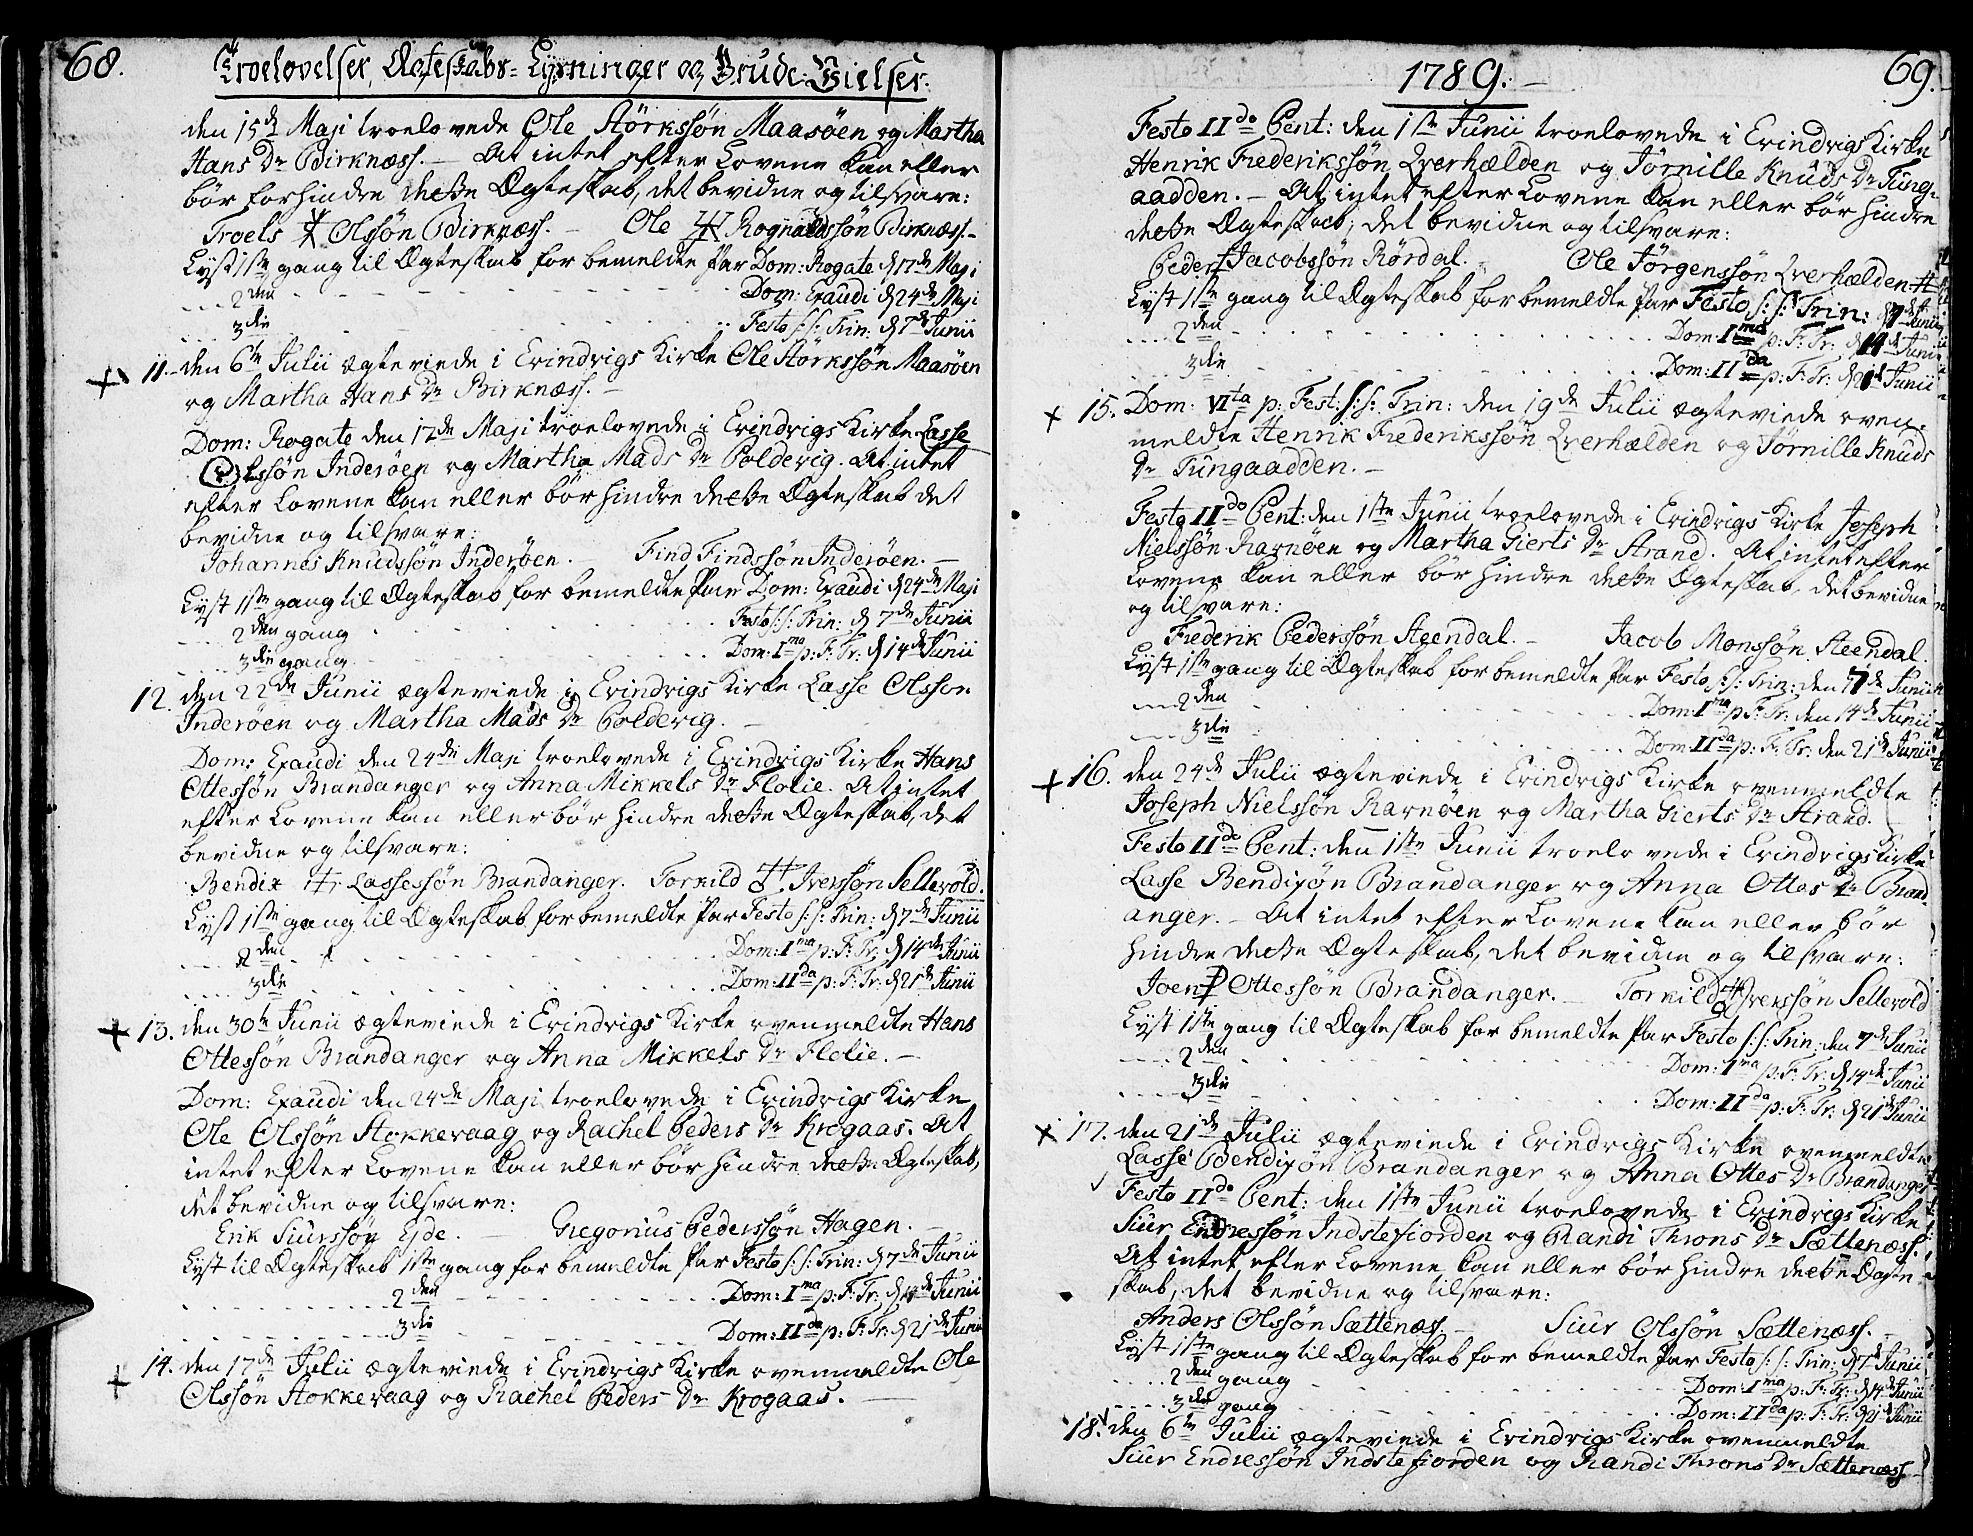 68.
Troelovelser, Ægteskabs-Lysninger og Brude-Vielser.
den 15de Maji troelovede Ole Störkssøn Maasøen og Martha
Hans Dr Birknæss. — At intet efter Lovene kan eller
bør forhindre dette Ægteskab, det bevidne og tilsvare:
Troels Olssøn Birknæss. — Ole Rognaldssøn Birknæss. -
Lyst 1ste gang til Ægteskab for bemeldte Par Dom: Rogate d 17de Maji
2den Dom: Exaudi d 24de Maji
3die Festo S: S: Trin: d 7de Junii
11. den 6te Julii ægteviede i Evindvigs Kirke Ole Störkssøn Maasøen
og Martha Hans Dr Birknæss. —
Dom: Rogate den 17de Maji troelovede i Evindvigs Kirke Lasse
Olssøn Inderøen og Martha Mads Dr Colderig. At intet
efter Lovene kan eller bør hindre dette Ægteskab det
bevidne og tilsvare:
Johannes Knudssøn Inderøen. Find Findssøn Inderøen. —
Lyst 1ste gang til Ægteskab for bemeldte Par Dom: Exaudi d 24de Maji
2den gang Festo S: S: Trin: d 7de Junii
3die gang Dom: Ima p: F: Tr: d 14de Junii
12. den 22de Junii ægteviede i Evindvigs Kirke Lasse Olsson
Inderøen og Martha Mads Dr Colderig. —
Dom: Exaudi den 24de Maji troelovede i Evindvigs Kirke Hans
Ottessøn Brandanger og Anna Mikkels Dr Flolie. At intet
efter Lovene kan eller bør hindre dette Ægteskab, det
bevidne og tilsvare:
Bendix Lassessøn Brandanger. Torkild Iverssøn Sellevold.
Lyst 1ste gang til Ægteskab for bemeldte Par Festo S: S: Trin: d 7de Junii
2den Dom: Ima p: F: Tr: d 14de Junii
3die Dom: IIda p: F: Tr: d 21de Junii
13. den 30te Junii ægteviede i Evindvigs Kirke ovenmeldte Hans
Ottessøn Brandanger og Anna Mikkels Dr Flolie. —
Dom: Exaudi den 24de Maji troelovede i Evindvigs Kirke
Ole Olssøn Stokkevaag og Rachel Peders Dr Krogaas. At
intet efter Lovene kan eller bør hindre dette Ægteskab,
det bevidne og tilsvare:
Erik Siurssøn Eyde. — Gregorius Pederssøn Hagen. —
Lyst til Ægteskab 1ste gang for bemeldte Par Festo S: S: Trin: d 7de Junii
2den Dom: Ima p: F: Tr: d 14de Junii
3die Dom: IIda p: F: Tr: d 21de Junii
14. den 17de Julii ægteviede i Evindvigs Kirke ovenmeldte Ole
Olssøn Stokkevaag og Rachel Peders Dr Krogaas. —
1789. —
69.
Festo IIdo Pent: den 1ste Junii troelovede i Evindvigs Kirke
Henrik Frederikssøn Qverhælden og Jörnille Knuds Dr Tung-
aadden. — At intet efter Lovene kan eller bør hindre
dette Ægteskab, det bevidne og tilsvare:
Peder Jacobssøn Rørdal. — Ole Jörgenssøn Qverhælden
Lyst 1ste gang til Ægteskab for bemeldte Par Festo S: S: Trin: d 7de Junii
2den Dom: Ima p: F: Tr: d 14de Junii
3die Dom: IIda p: F: Tr: d 21de Junii
15. Dom: VIta p: Fest: S: S: Trin: den 19de Julii ægteviede oven-
meldte Henrik Frederikssøn Qverhælden og Jörnille Knuds
Dr Tungaadden. —
Festo IIdo Pent: den 1ste Junii troelovede i Evindvigs Kirke Joseph
Nielssøn Ravnøen og Martha Gierts Dr Strand. At intet efter
Lovene kan eller bør hindre dette Ægteskab, det bevidne
og tilsvare:
Frederik Pederssøn Steendal. — Jacob Monssøn Steendal.
Lyst 1ste gang til Ægteskab for bemeldte Par Festo S: S: Trin: den 7de Junii
2den Dom: Ima p: F: Tr: den 14de Junii
3die Dom: IIda p: F: Tr: den 21de Junii
16. den 24de Julii ægteviede i Evindvigs Kirke ovenmeldte
Joseph Nielssøn Ravnøen og Martha Gierts Dr Strand.
Festo IIdo Pent: den 1ste Junii troelovede i Evindvigs Kirke
Lasse Bendixøn Brandanger og Anna Ottes Dr Brand-
anger. — At intet efter Lovene kan eller bør
hindre dette Ægteskab, det bevidne og tilsvare:
Joen Ottessøn Brandanger. — Torkild Iverssøn Sellevold
Lyst 1ste gang til Ægteskab for bemeldte Par Festo S: S: Trin: den 7de Junii
2den Dom: Ima p: F: Tr: d 14de Junii
3die Dom: IIda p: F: Tr: d 21de Junii
17. den 21de Julii ægteviede i Evindvigs Kirke ovenmeldte
Lasse Bendixøn Brandanger og Anna Ottes Dr Brandanger
Festo IIdo Pent: den 1ste Junii troelovede i Evindvigs Kirke
Siur Endressøn Indstefiorden og Randi Throns Dr Sættenæss.
At intet efter Lovene kan eller bør hindre dette Ægte-
skab, det bevidne og tilsvare:
Anders Olssøn Sættenæss — Siur Olssøn Sættenæss. —
Lyst 1ste gang til Ægteskab for bemeldte Par Festo S: S: Trin: d 7de Junii
2den gang Dom: Ima p: F: Tr: d 14de Junii
3die gang Dom: IIda p: F: Tr: d 21de Junii
18. den 6te Julii ægteviede i Evindvigs Kirke ovenmeldte
Siur Endressøn Indstefiorden og Randi Throns Dr Sættenæss